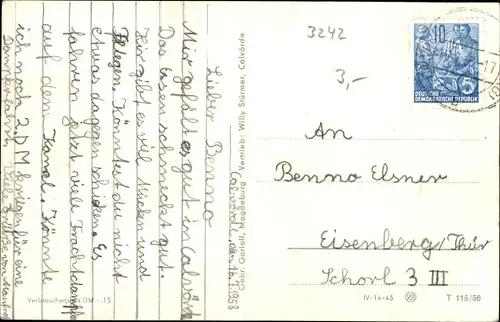 3242
3,-
10
DEUTSCHE
DEMOKRATISCHE REPUBLIK
5
An
Benno Elsner
Eisenberg/Thür
Schorl 3 III
IV-14-45
T 115/56
Gebr. Garloff, Magdeburg Vertrieb: Willy Stürmer, Calvörde
Verbraucherpreis DM -.15
Calvörde, den 16.7.1958
Lieber Benno
Mir gefällt es gut in Calvörde
Das Essen schmeckt gut.
Hir gibt es viel Mücken und
Fliegen. Könntest du nicht
etwas dagegen schicken. Es
fahren jetzt viele Frachtdampfer
auf dem Kanal. Könnte
ich noch 2.DM kriegen für eine
Dampferfahrt.
Viele Grüße von Manfred